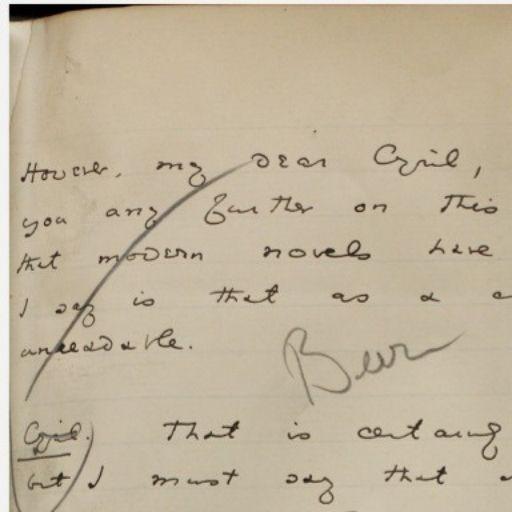 However, my dear Cyril,
you any further on this
that modern novels have
I say is that as a
unreadable.
Cyril. That is certainly
but I must say that